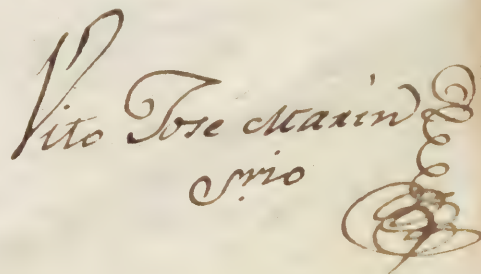 Vito Jose Marin
srio